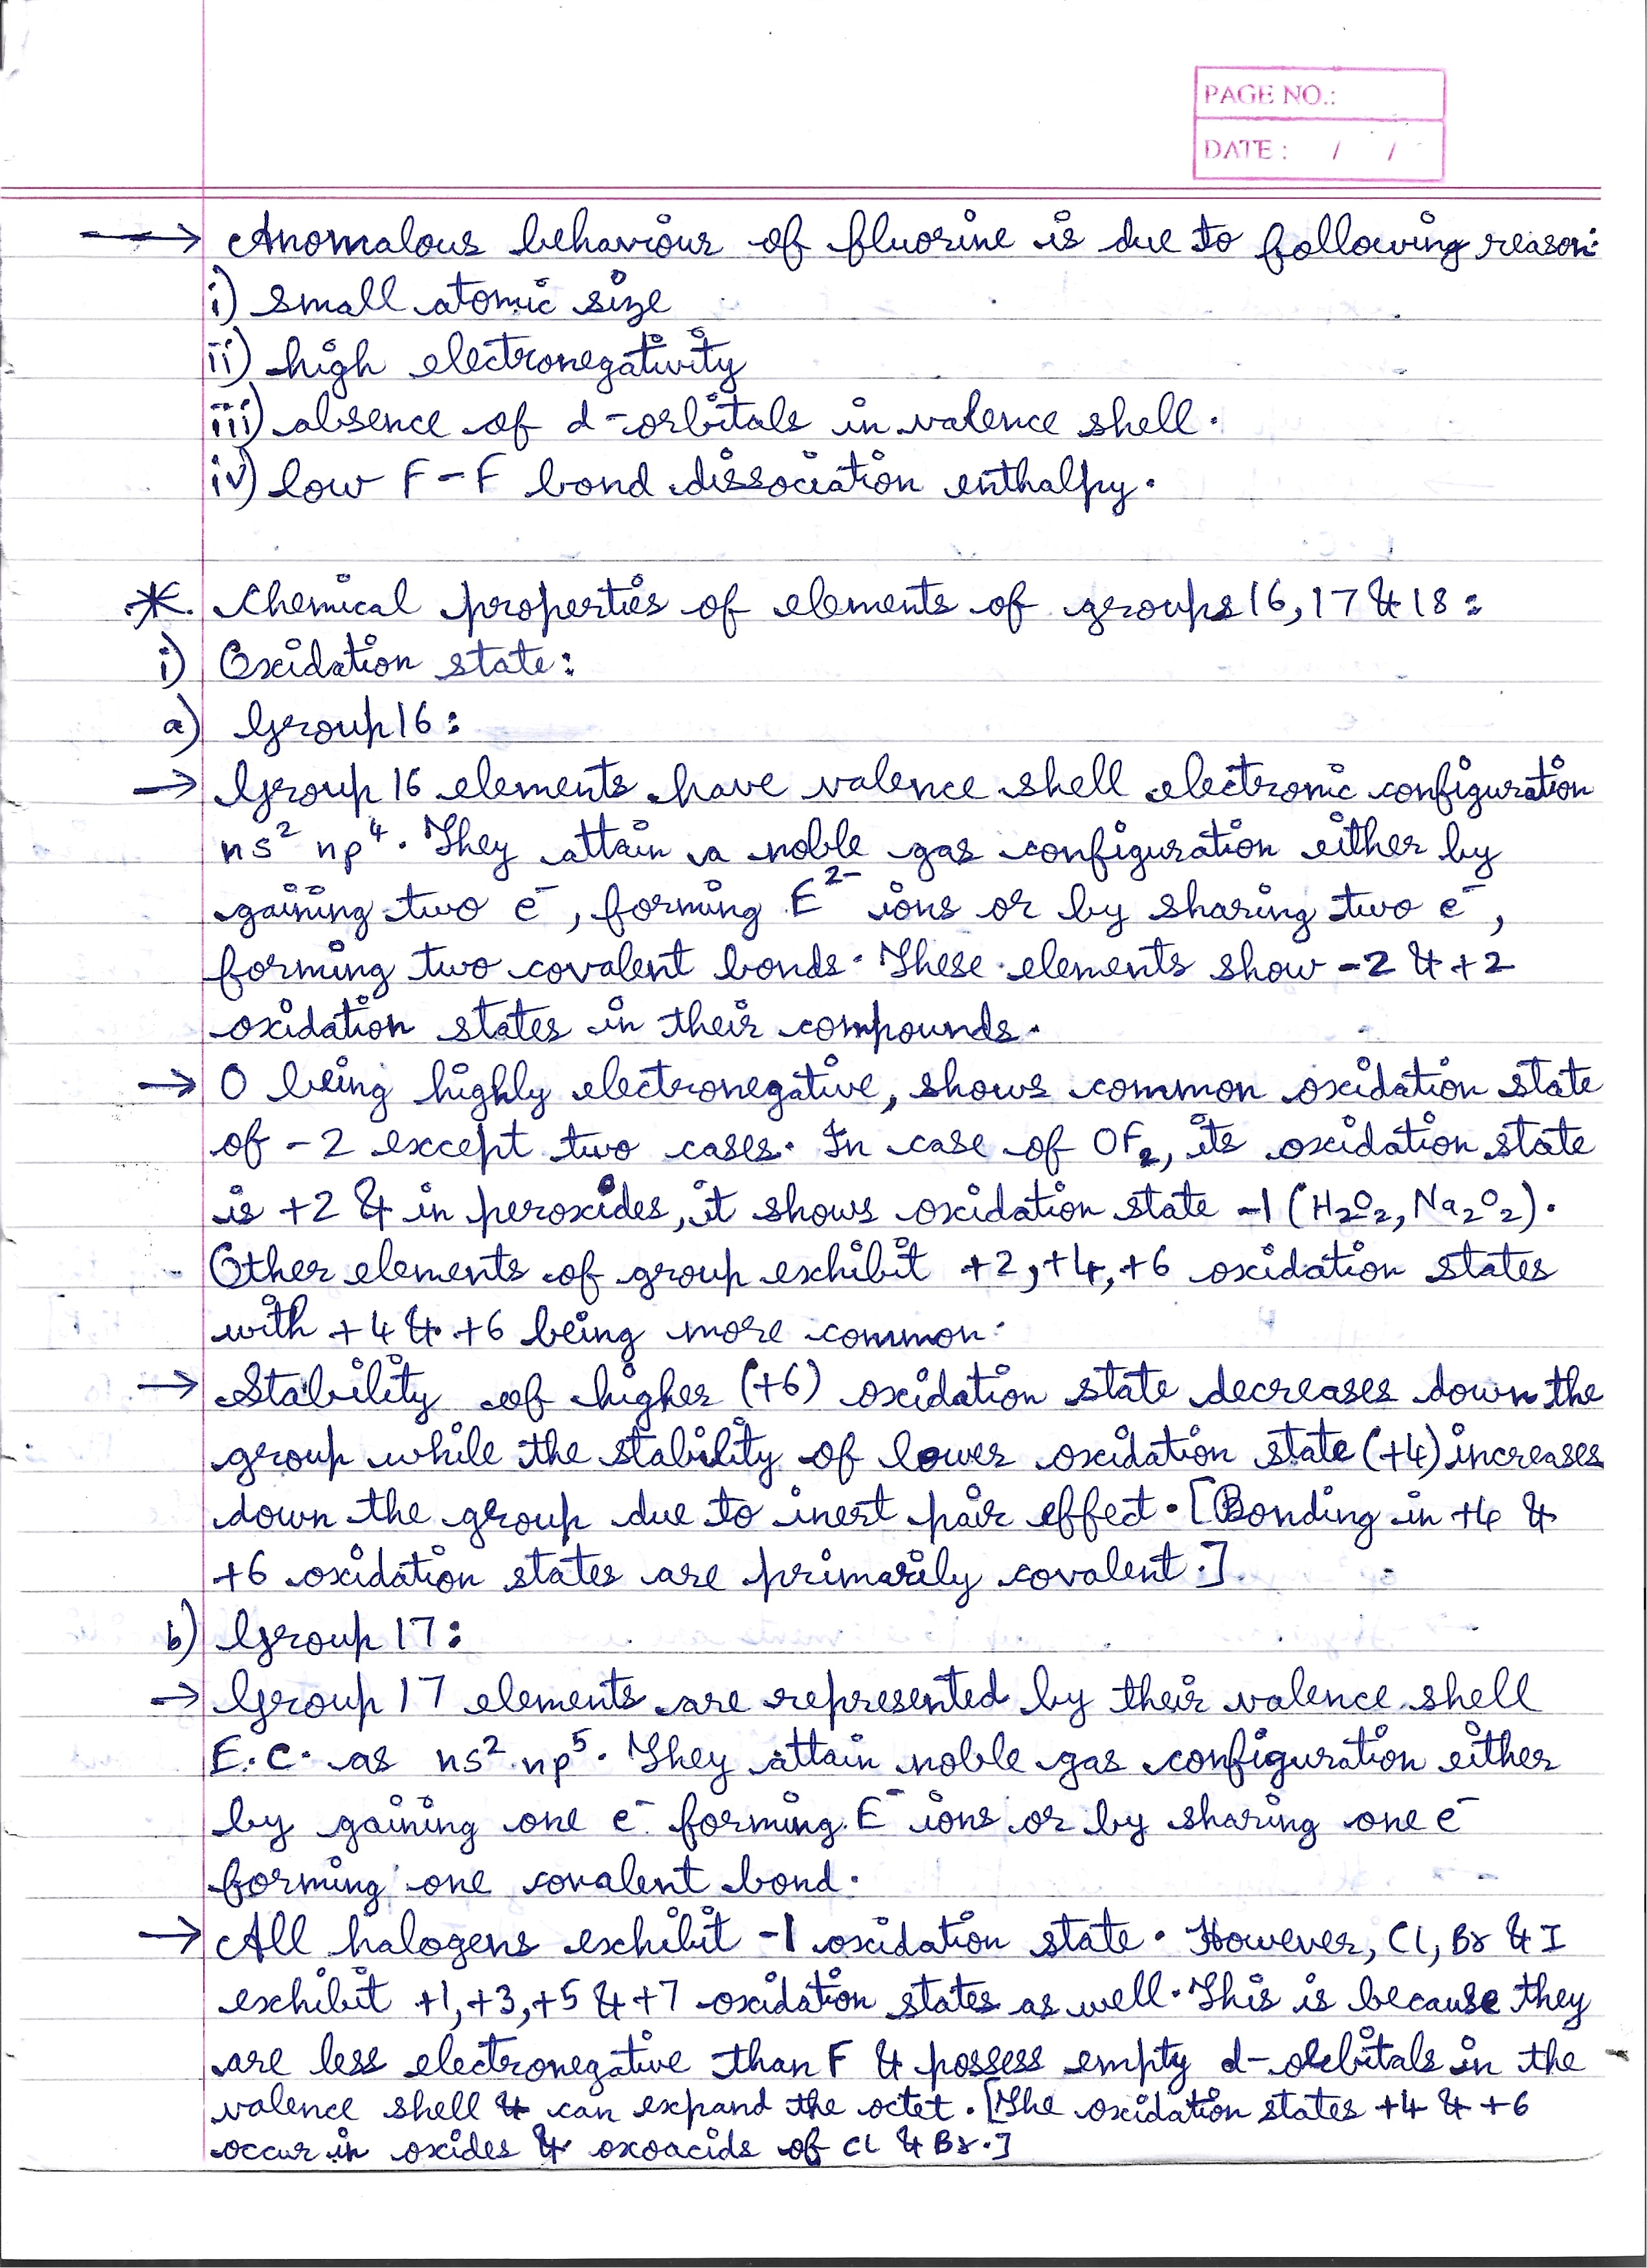 PAGE NO.:
DATE : / /
→ Anomalous behaviour of fluorine is due to following reason:
i) small atomic size
ii) high electronegativity
iii) absence of d-orbitals in valence shell.
iv) low F-F bond dissociation enthalpy.
* Chemical properties of elements of groups 16, 17 & 18 :
i) Oxidation state :
a) Group 16 :
→ Group 16 elements have valence shell electronic configuration
ns² np⁴. They attain a noble gas configuration either by
gaining two e⁻, forming E²⁻ ions or by sharing two e⁻,
forming two covalent bonds. These elements show -2 & +2
oxidation states in their compounds.
→ O being highly electronegative, shows common oxidation state
of -2 except two cases. In case of OF₂, its oxidation state
is +2 & in peroxides, it shows oxidation state -1 (H₂O₂, Na₂O₂).
Other elements of group exhibit +2, +4, +6 oxidation states
with +4 & +6 being more common.
→ Stability of higher (+6) oxidation state decreases down the
group while the stability of lower oxidation state (+4) increases
down the group due to inert pair effect. [Bonding in +4 &
+6 oxidation states are primarily covalent.]
b) Group 17 :
→ Group 17 elements are represented by their valence shell
E.C. as ns² np⁵. They attain noble gas configuration either
by gaining one e⁻ forming E⁻ ions or by sharing one e⁻
forming one covalent bond.
→ All halogens exhibit -1 oxidation state. However, Cl, Br & I
exhibit +1, +3, +5 & +7 oxidation states as well. This is because they
are less electronegative than F & possess empty d-orbitals in the
valence shell & can expand the octet. [The oxidation states +4 & +6
occur in oxides & oxoacids of Cl & Br.]